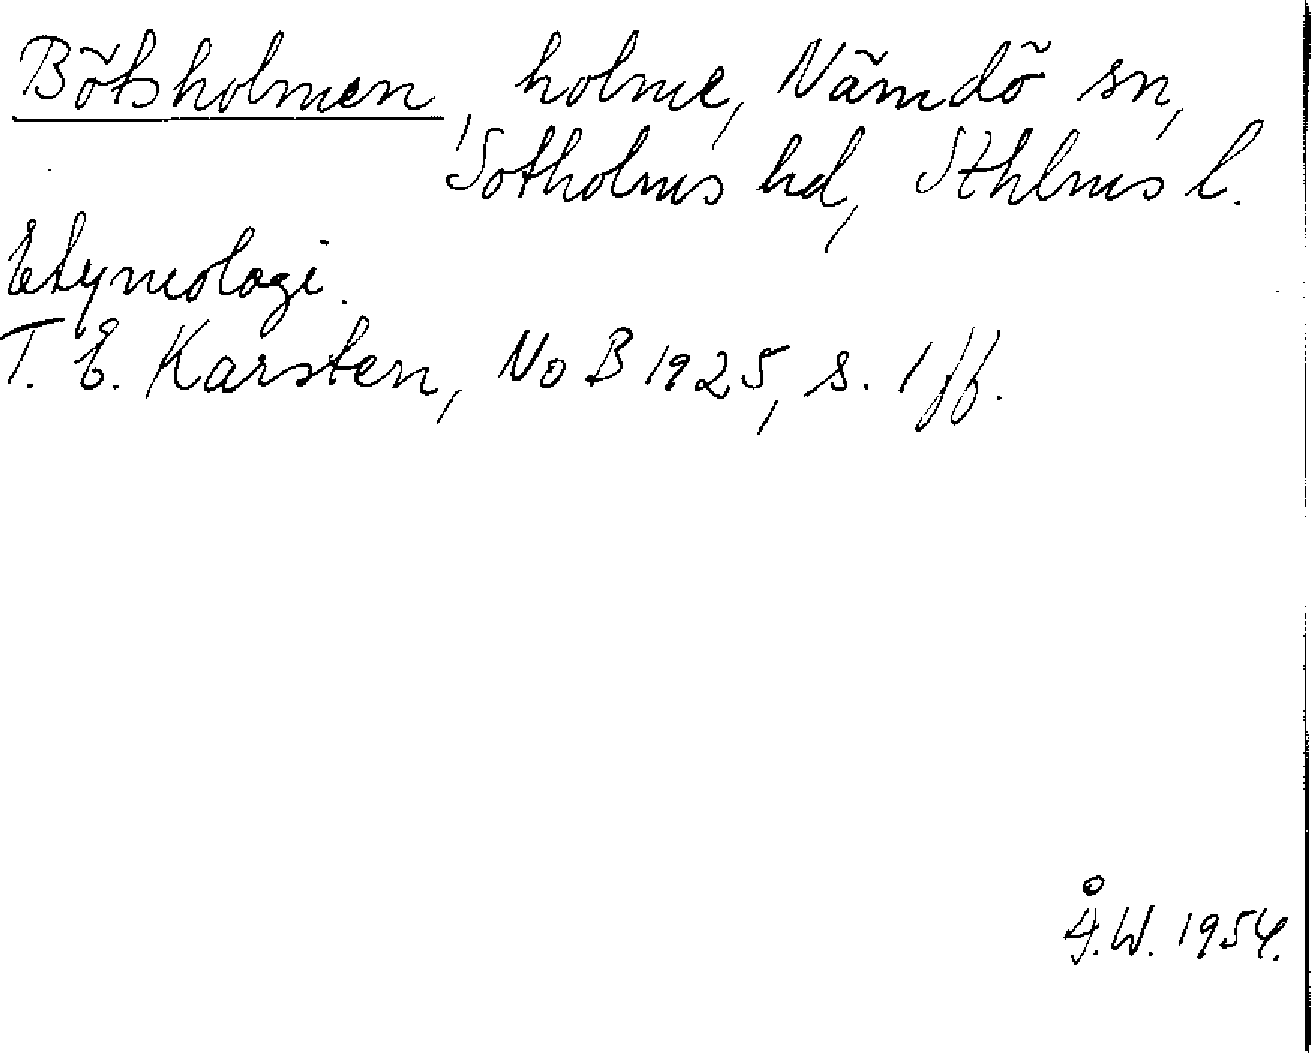 Bötsholmen, holme, Nämdö sn,
Sotholms hd, Sthlms l.
Etymologi.
T. E. Karsten, NoB 1925, s. 1 ff.
Å.W. 1954.